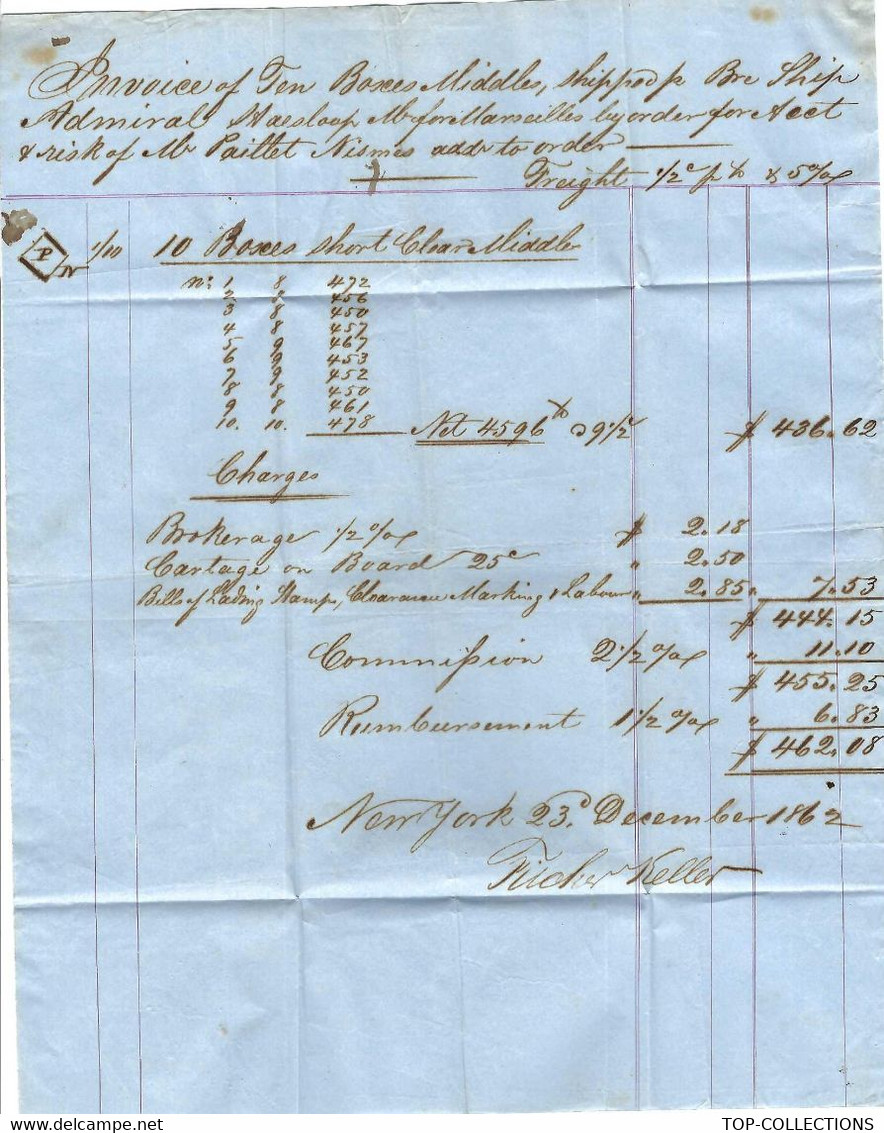 Invoice of Ten Boxes Middles, shipped p Bre Ship
Admiral Staesloop Mr for Marseilles by order for Acct
& risk of Mr Paillet Nismes add. to order
Freight 1/2c p lb & 5%
P N 1/10 10 Boxes short Clear Middles
No: 1 8 472
2 8 456
3 8 450
4 8 457
5 9 467
6 9 453
7 9 452
8 8 450
9 8 461
10. 10. 478 Net 4596 lb @ 9 1/2c $ 436.62
Charges
Brokerage 1/2 % $ 2.18
Cartage on Board 25c " 2.50
Bills of Lading Stamps, Clearance Marking & Labour " 2.85 " 7.53
$ 444.15
Commission 2 1/2 % " 11.10
$ 455.25
Rumbursement 1 1/2 % " 6.83
$ 462.08
New York 23d. December 1862
Keller
TOP-COLLECTIONS